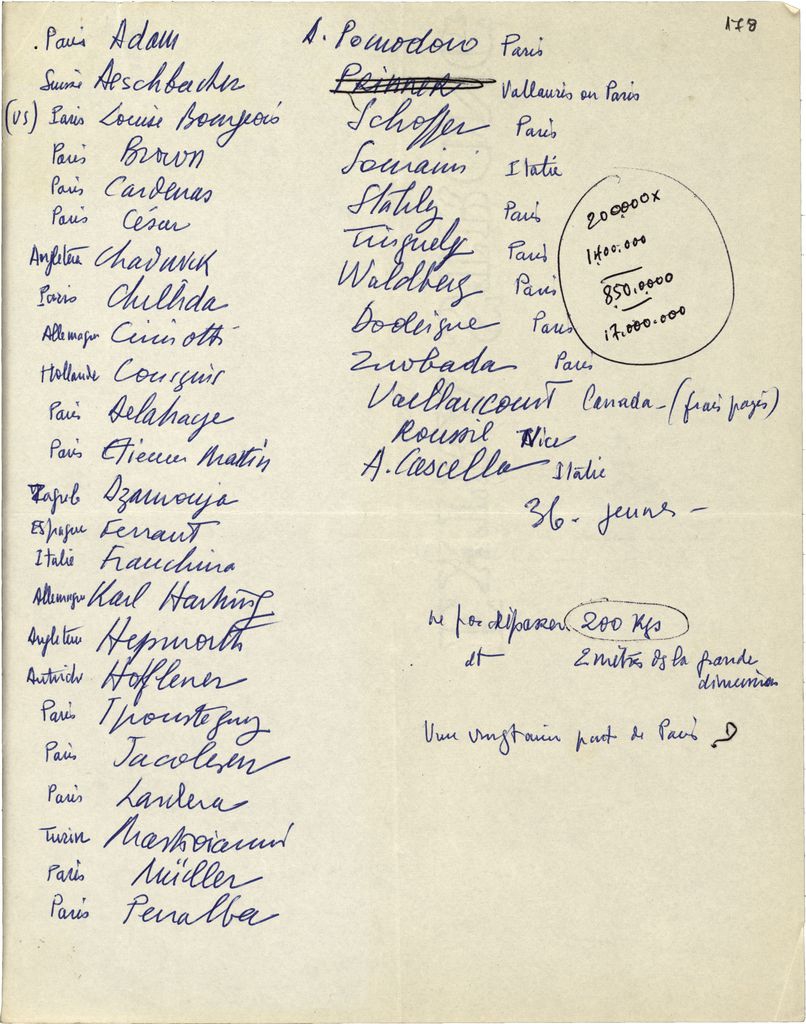 178
. Paris Adam
Suisse Aeschbacher
(US) Paris Louise Bourgeois
Paris Brown
Paris Cardenas
Paris César
Angleterre Chadwick
Paris Chillida
Allemagne Cimiotti
Hollande Couzijn
Paris Delahaye
Paris Etienne Martin
Zagreb Dzamonja
Espagne Ferrant
Italie Franchina
Allemagne Karl Hartung
Angleterre Hepworth
Autriche Hoflener
Paris Ipousteguy
Paris Jacobsen
Paris Lardera
Turin Mastroianni
Paris Müller
Paris Penalba
A. Pomodoro Paris
Prinner Vallauris ou Paris
Schoffer Paris
Somaini Italie
Stahly Paris
Tinguely Paris
Waldberg Paris
Dodeigne Paris
Zwobada Paris
Vaillancourt Canada - (frais payés)
Roussil Nice
A. Cascella Italie
36. jeunes -
200000x
1400.000
850.0000
17.000.000
ne pas dépasser 200 Kgs
et 2 mètres ds la grande
dimension
Une vingtaine part de Paris